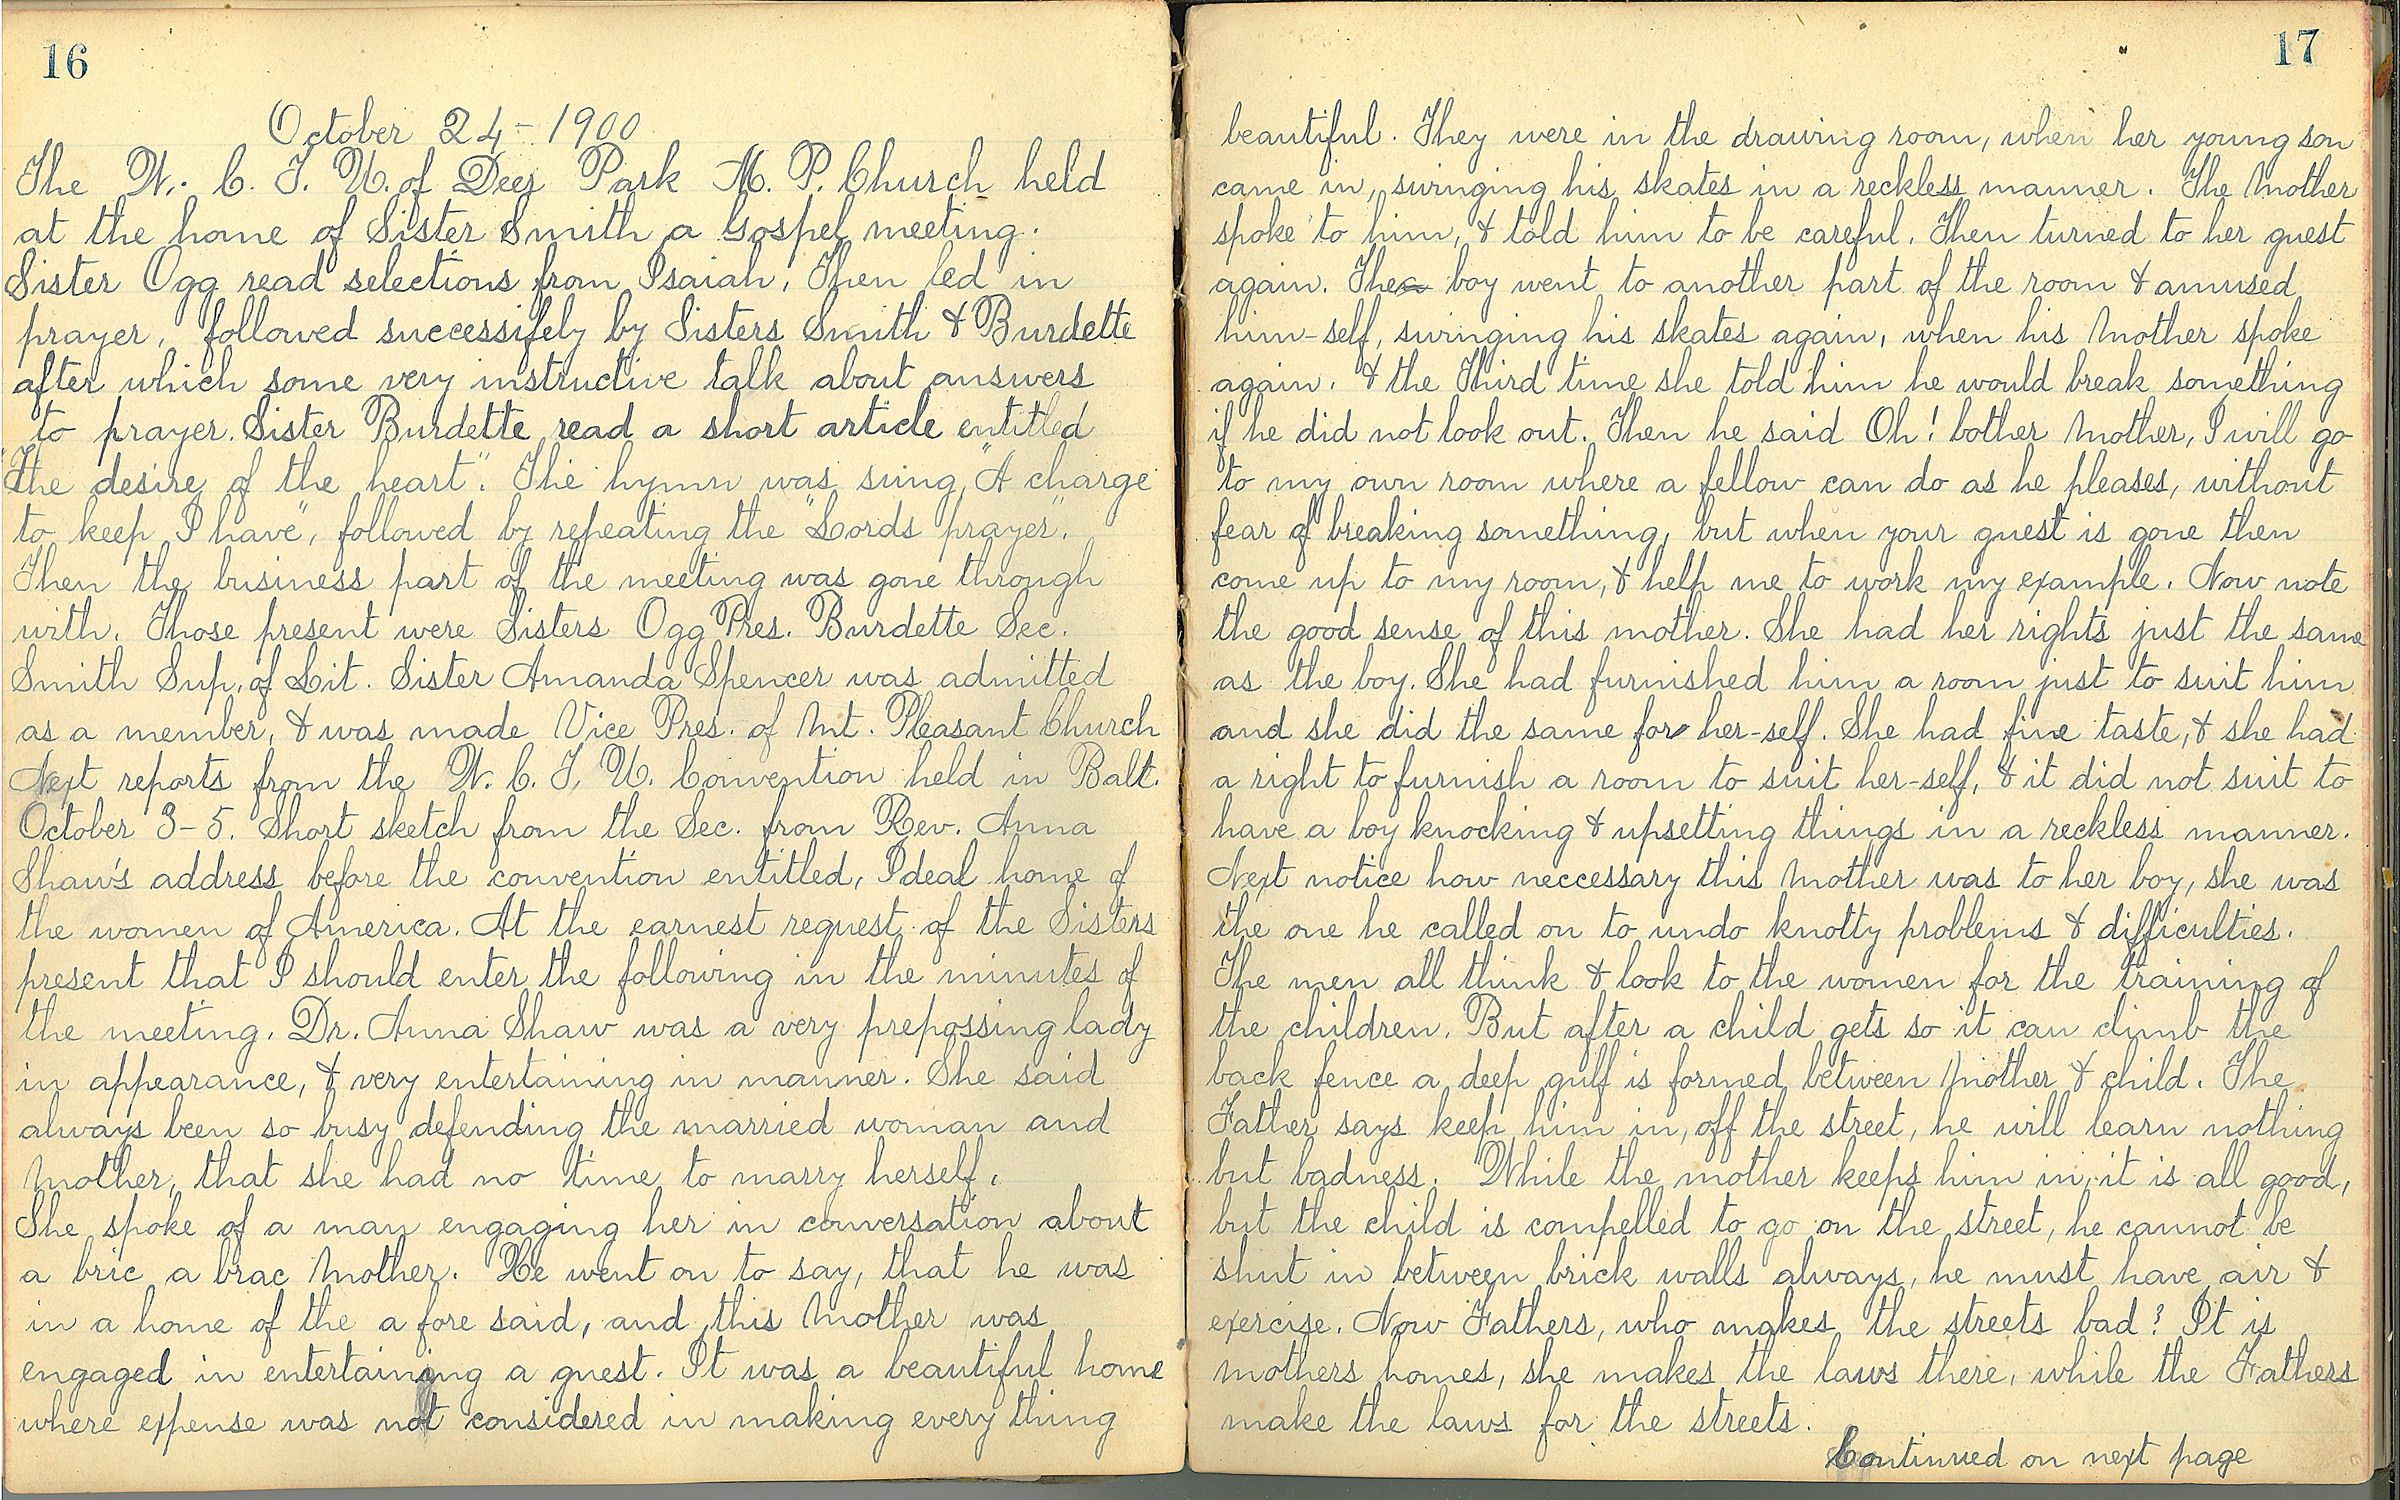 16
October 24 - 1900
The W. C. T. U. of Deer Park M. P. Church held
at the home of Sister Smith a Gospel meeting.
Sister Ogg read selections from Isaiah, Then led in
prayer, followed successifely by Sisters Smith & Burdette
after which some very instructive talk about answers
to prayer. Sister Burdette read a short article entitled
"The desire of the heart". The hymn was sung, "A charge
to keep I have", followed by repeating the "Lords prayer".
Then the business part of the meeting was gone through
with. Those present were Sisters Ogg Pres. Burdette Sec.
Smith Sup. of Lit. Sister Amanda Spencer was admitted
as a member, & was made Vice Pres. of Mt. Pleasant Church
Next reports from the W. C. T. U. Convention held in Balt.
October 3-5. Short sketch from the Sec. from Rev. Anna
Shaw's address before the convention entitled, Ideal home of
the women of America. At the earnest request of the Sisters
present that I should enter the following in the minutes of
the meeting. Dr. Anna Shaw was a very prepossing lady
in appearance, & very entertaining in manner. She said
always been so busy defending the married woman and
Mother, that she had no time to marry herself.
She spoke of a man engaging her in conversation about
a bric a brac Mother. He went on to say, that he was
in a home of the a fore said, and this Mother was
engaged in entertaining a guest. It was a beautiful home
where expense was not considered in making every thing
17
beautiful. They were in the drawing room, when her young son
came in, swinging his skates in a reckless manner. The Mother
spoke to him, & told him to be careful. Then turned to her guest
again. The boy went to another part of the room & amused
him-self, swinging his skates again, when his Mother spoke
again. & the Third time she told him he would break something
if he did not look out. Then he said Oh! bother Mother, I will go
to my own room where a fellow can do as he pleases, without
fear of breaking something, but when your guest is gone then
come up to my room, & help me to work my example. Now note
the good sense of this mother. She had her rights just the same
as the boy. She had furnished him a room just to suit him
and she did the same for her-self. She had fine taste, & she had
a right to furnish a room to suit her-self, & it did not suit to
have a boy knocking & upsetting things in a reckless manner.
Next notice how neccessary this Mother was to her boy, she was
the one he called on to undo knotty problems & difficulties.
The men all think & look to the women for the training of
the children. But after a child gets so it can climb the
back fence a deep gulf is formed between Mother & child. The
Father says keep him in, off the street, he will learn nothing
but badness. While the mother keeps him in, it is all good,
but the child is compelled to go on the street, he cannot be
shut in between brick walls always, he must have air &
exercise. Now Fathers, who makes the streets bad? It is
mothers homes, she makes the laws there, while the Fathers
make the laws for the streets.
Continued on next page